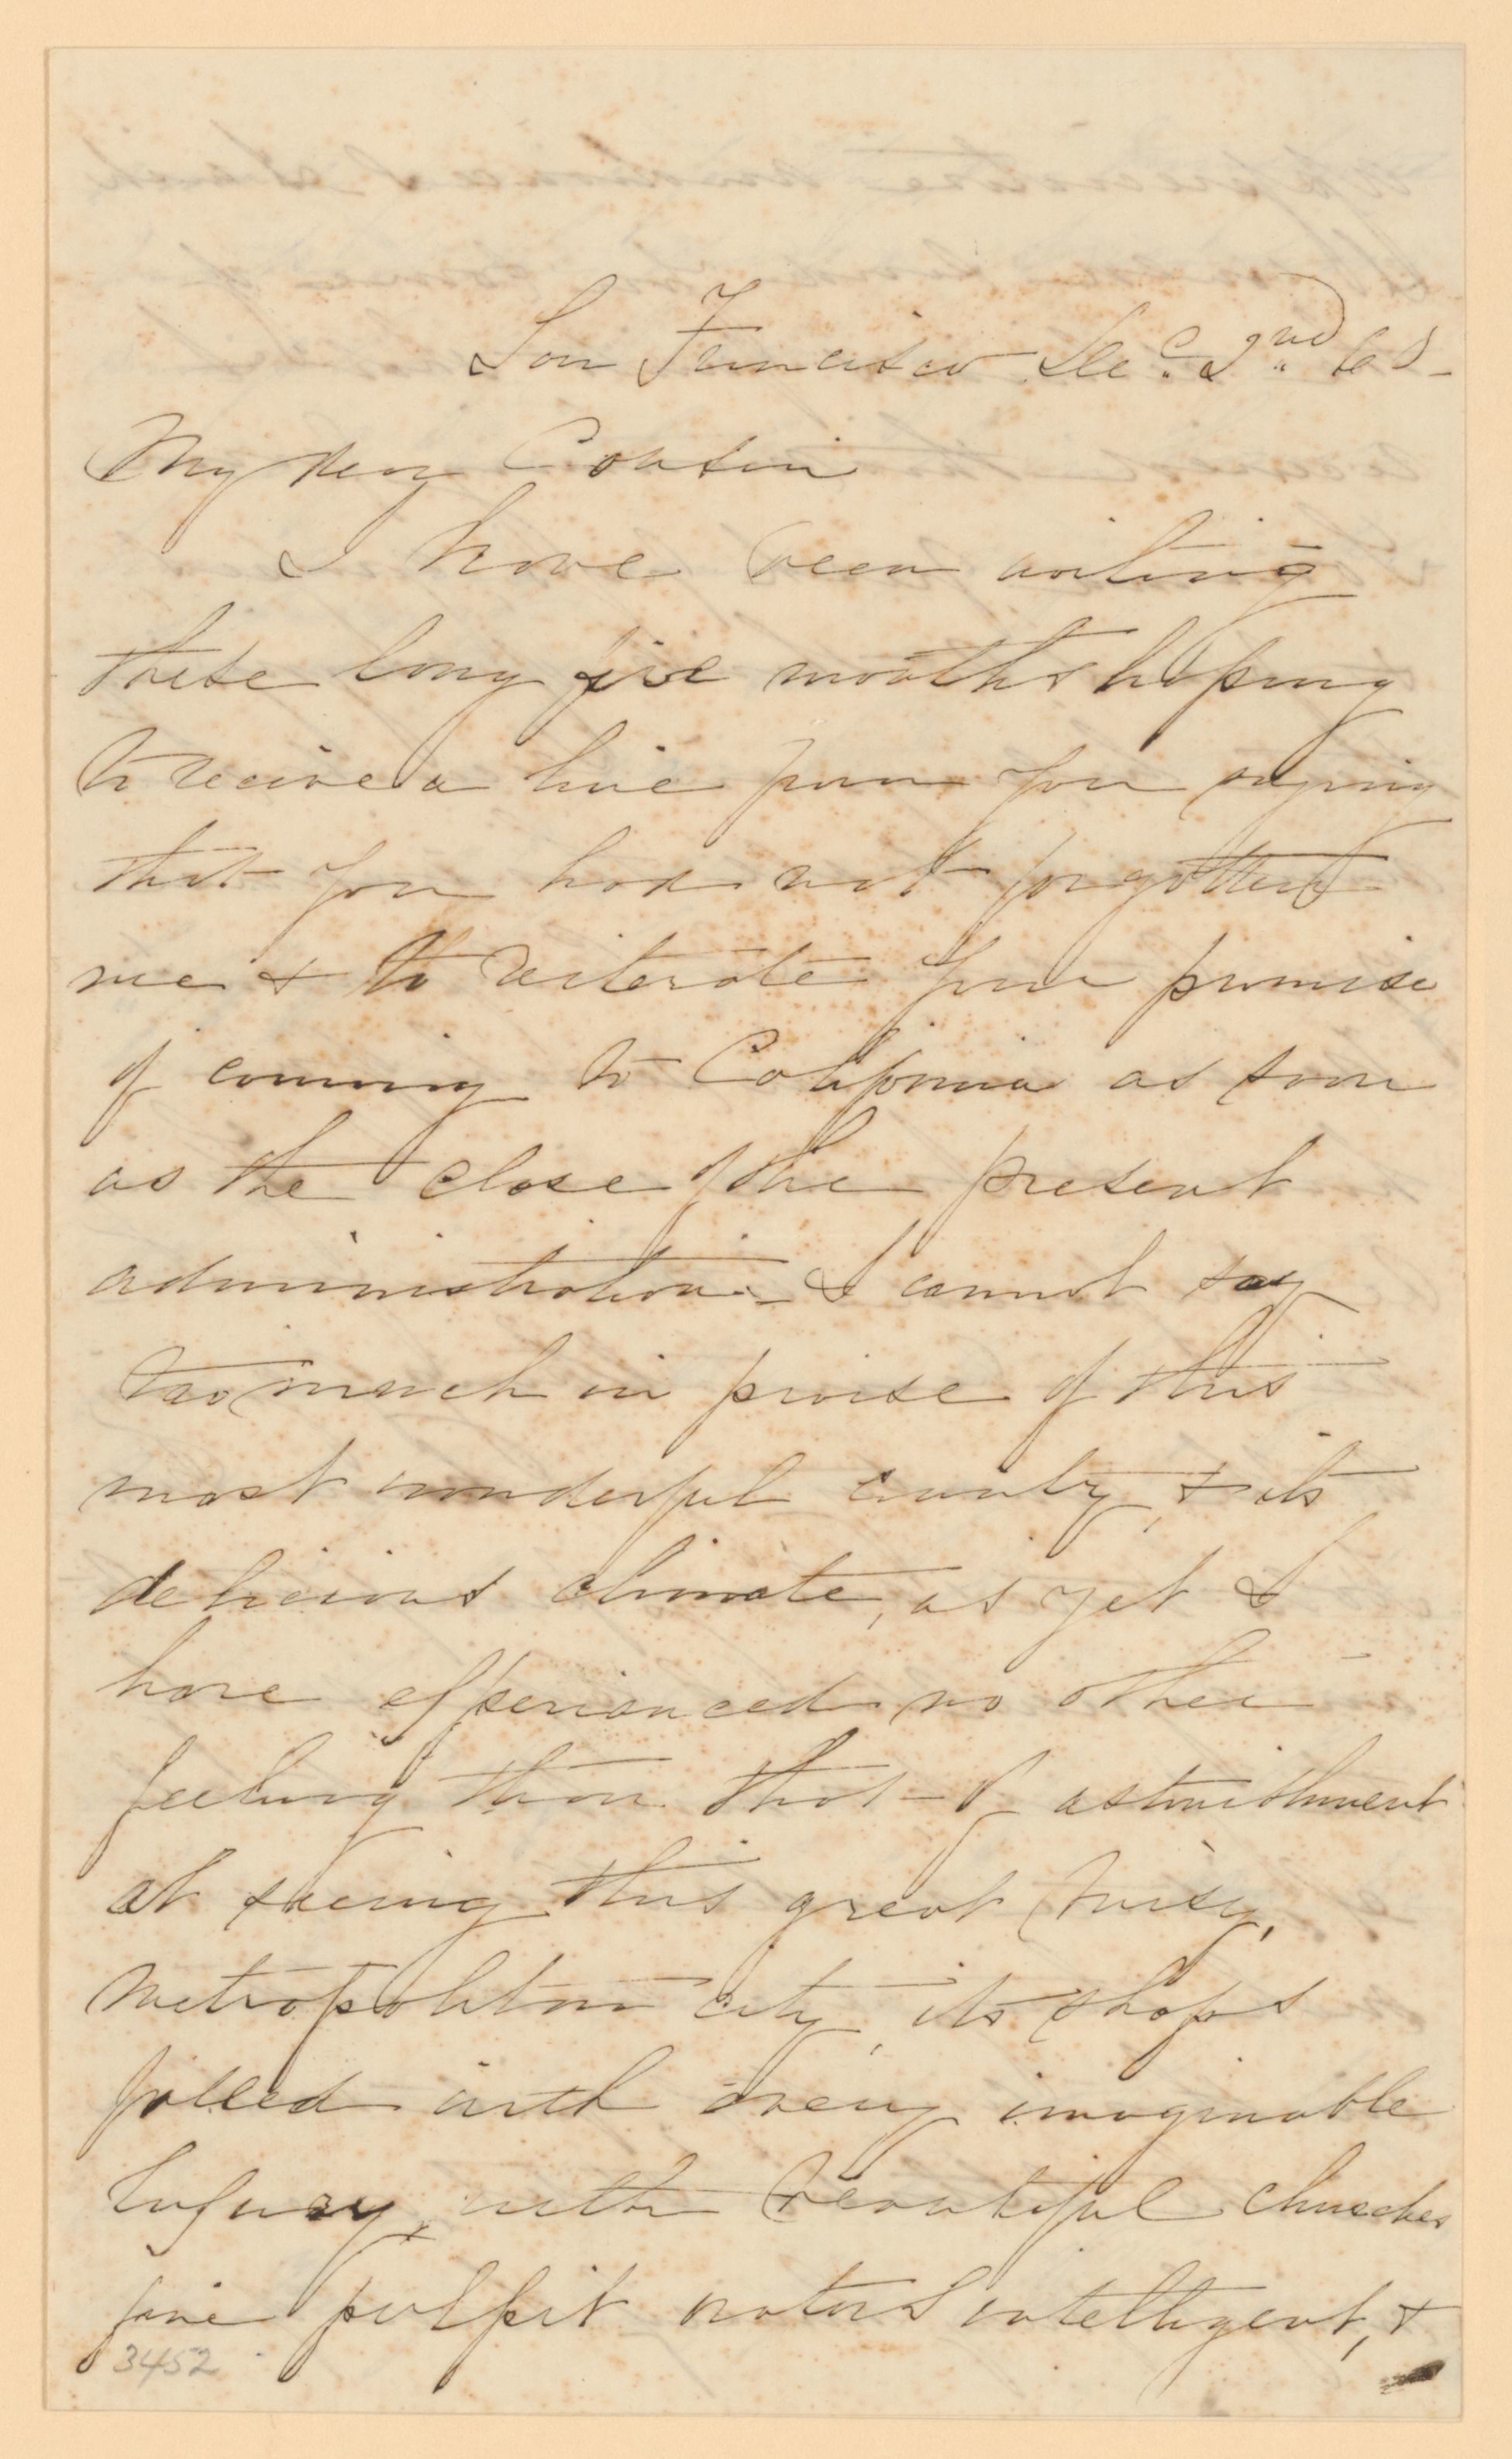 San Francisco Dec. 2nd 65-
My dear Cousin
I have been waiting
these long five months hoping
to receive a line from you saying
that you had not forgotten
me & to reiterate your promise
of coming to California as soon
as the close of the present
administration - I cannot say
too much in praise of this
most wonderful country, & its
delicious climate, as yet I
have experianced no other
feeling than that of astonishment
at seeing this great busy,
metropolitan city, its shops
filled with every imaginable
luxury, with beautiful churches
fine pulpit orators intelligent, &
3452